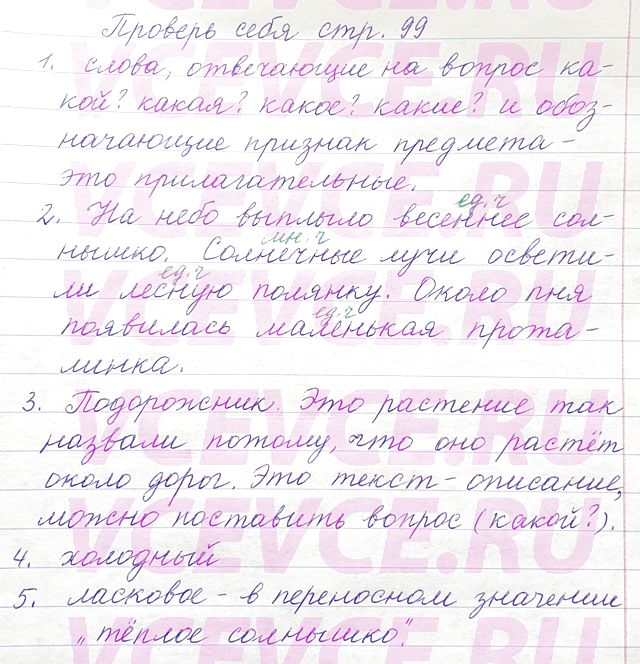 Проверь себя стр. 99
1. слова, отвечающие на вопрос ка-
кой? какая? какое? какие? и обоз-
начающие признак предмета -
это прилагательные.
ед.ч
2. На небо выплыло весеннее сол-
мн.ч
нышко. Солнечные лучи освети-
ед.ч
ли лесную полянку. Около пня
ед.ч
появилась маленькая прота-
линка.
3. Подорожник. Это растение так
назвали потому, что оно растёт
около дорог. Это текст - описание,
можно поставить вопрос (какой?).
4. холодный
5. ласковое - в переносном значении
„тёплое солнышко".
VCEVCE.RU
VCEVCE.RU
VCEVCE.RU
VCEVCE.RU
VCEVCE.RU
VCEVCE.RU
VCEVCE.RU